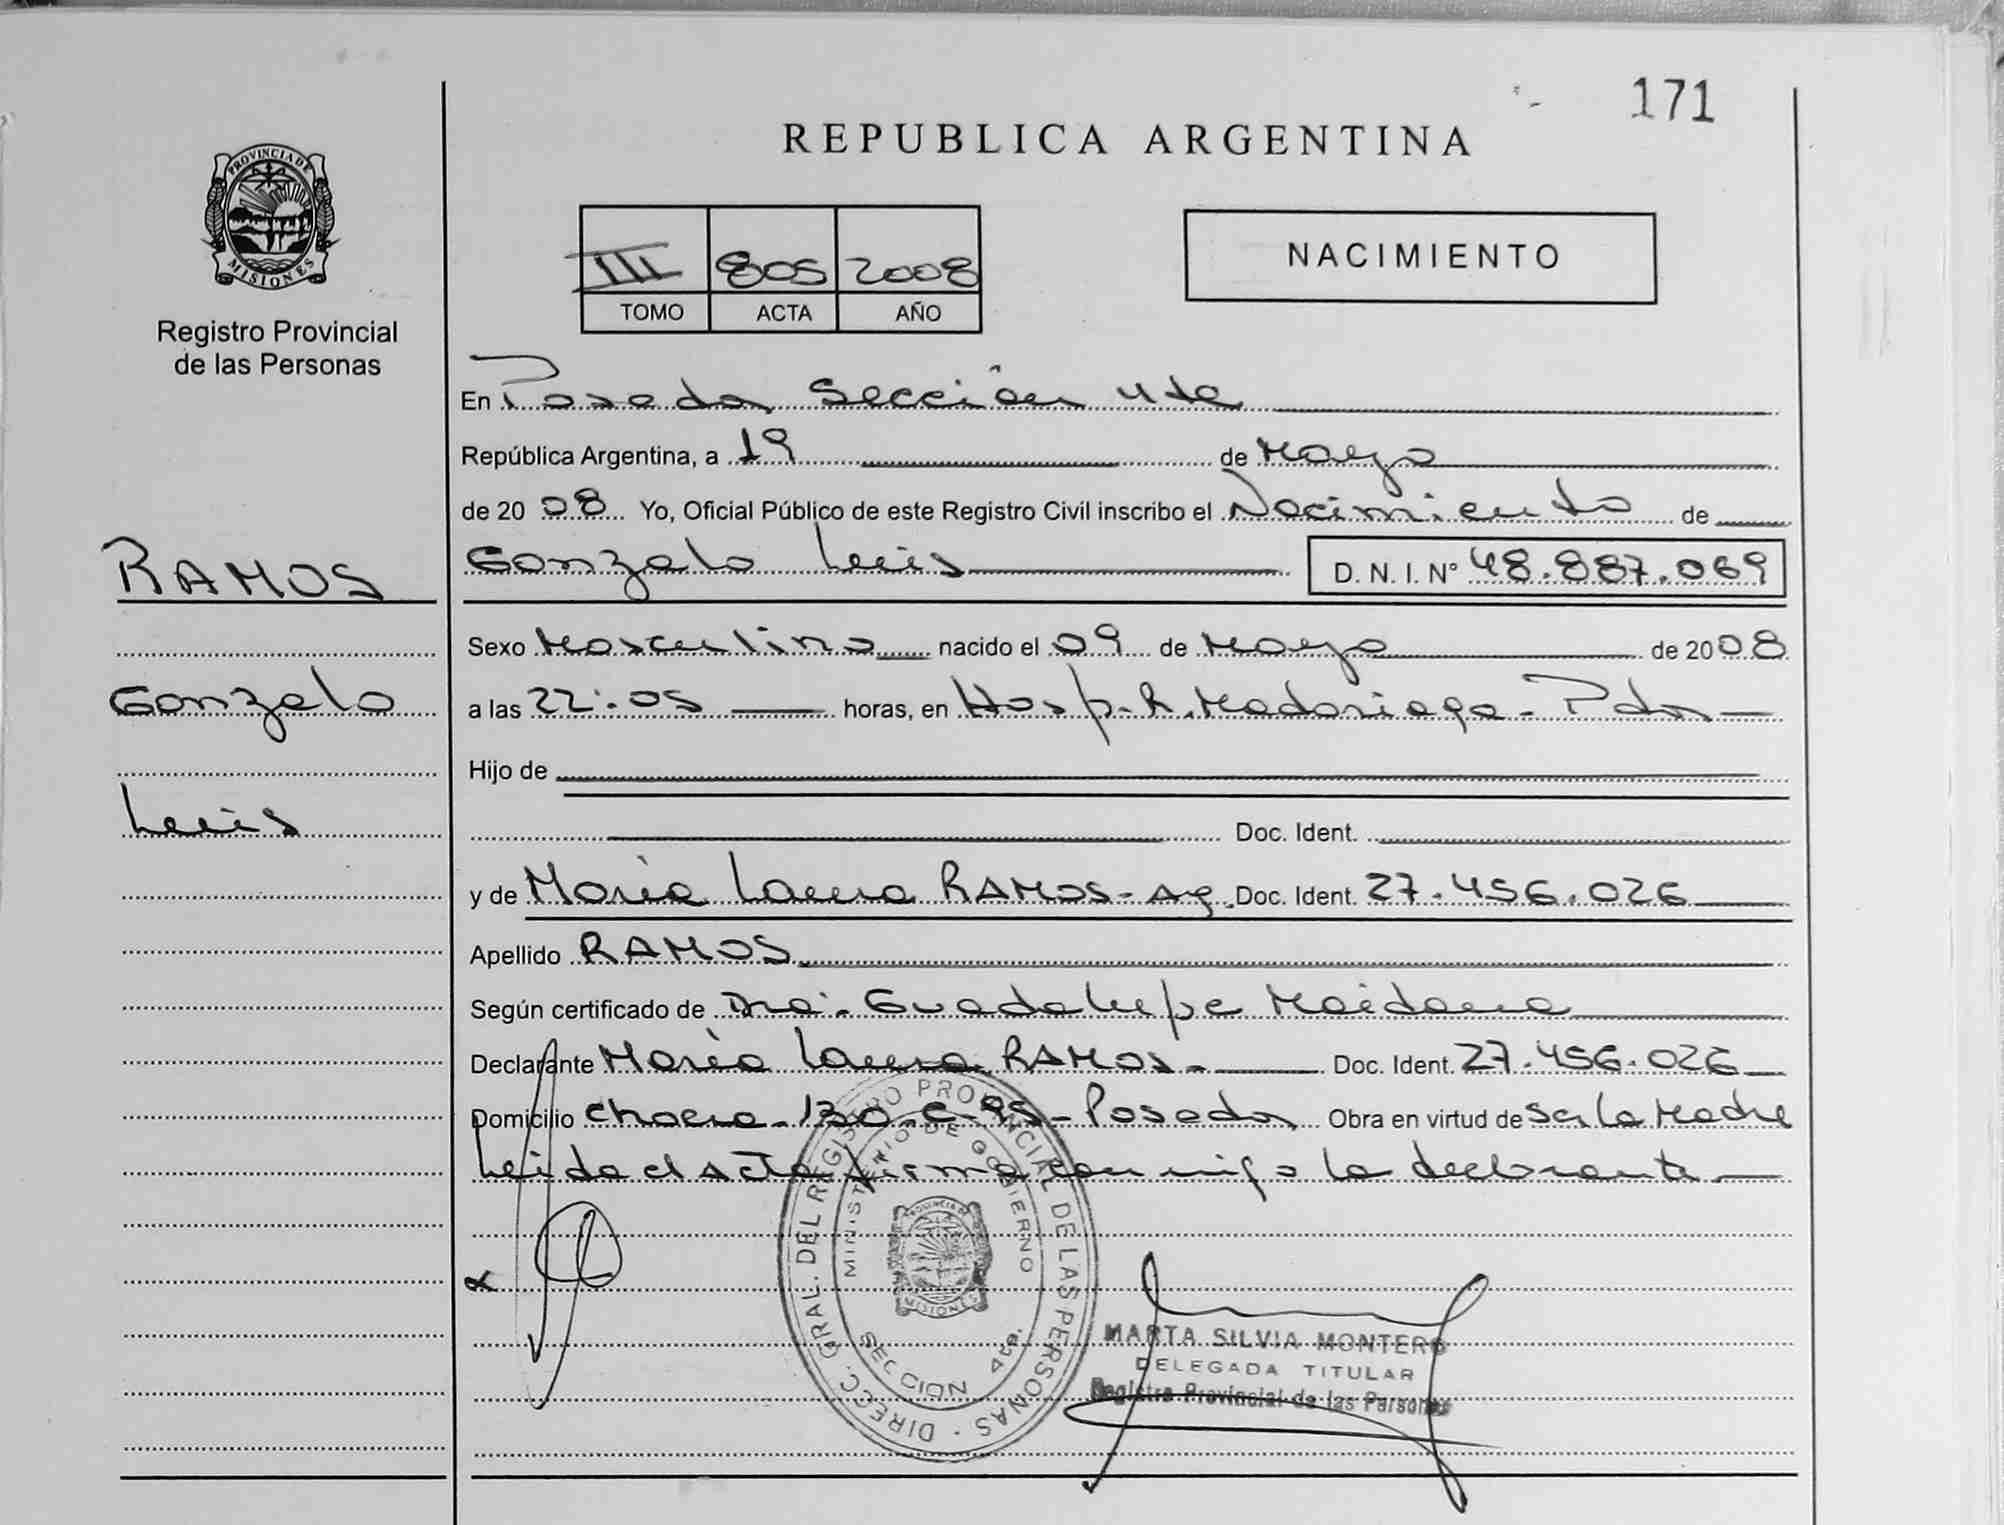 171
REPUBLICA ARGENTINA
PROVINCIA DE
MISIONES
Registro Provincial
de las Personas
III 805 2008
TOMO ACTA AÑO
NACIMIENTO
En Posadas Sección 4ta
República Argentina, a 19 de Mayo
de 2008 Yo, Oficial Público de este Registro Civil inscribo el Nacimiento de
Gonzalo Luis D. N. I. N° 48.887.069
RAMOS
Gonzalo
Luis
Sexo Masculino nacido el 09 de Mayo de 2008
a las 22:05 horas, en Hosp. R. Madariaga - Pdas
Hijo de
Doc. Ident.
y de María Laura RAMOS - Arg. Doc. Ident. 27.456.026
Apellido RAMOS
Según certificado de Dra. Guadalupe Maidana
Declarante María Laura RAMOS - Doc. Ident. 27.456.026
Domicilio Chacra 130 C-95 - Posadas Obra en virtud de Ser la Madre
Leida el Acta firma conmigo la declarante
DIRECC. GRAL. DEL REGISTRO PROVINCIAL DE LAS PERSONAS
MINISTERIO DE GOBIERNO
PROVINCIA DE
MISIONES
SECCION 4ta.
MARTA SILVIA MONTERO
DELEGADA TITULAR
Registro Provincial de las Personas